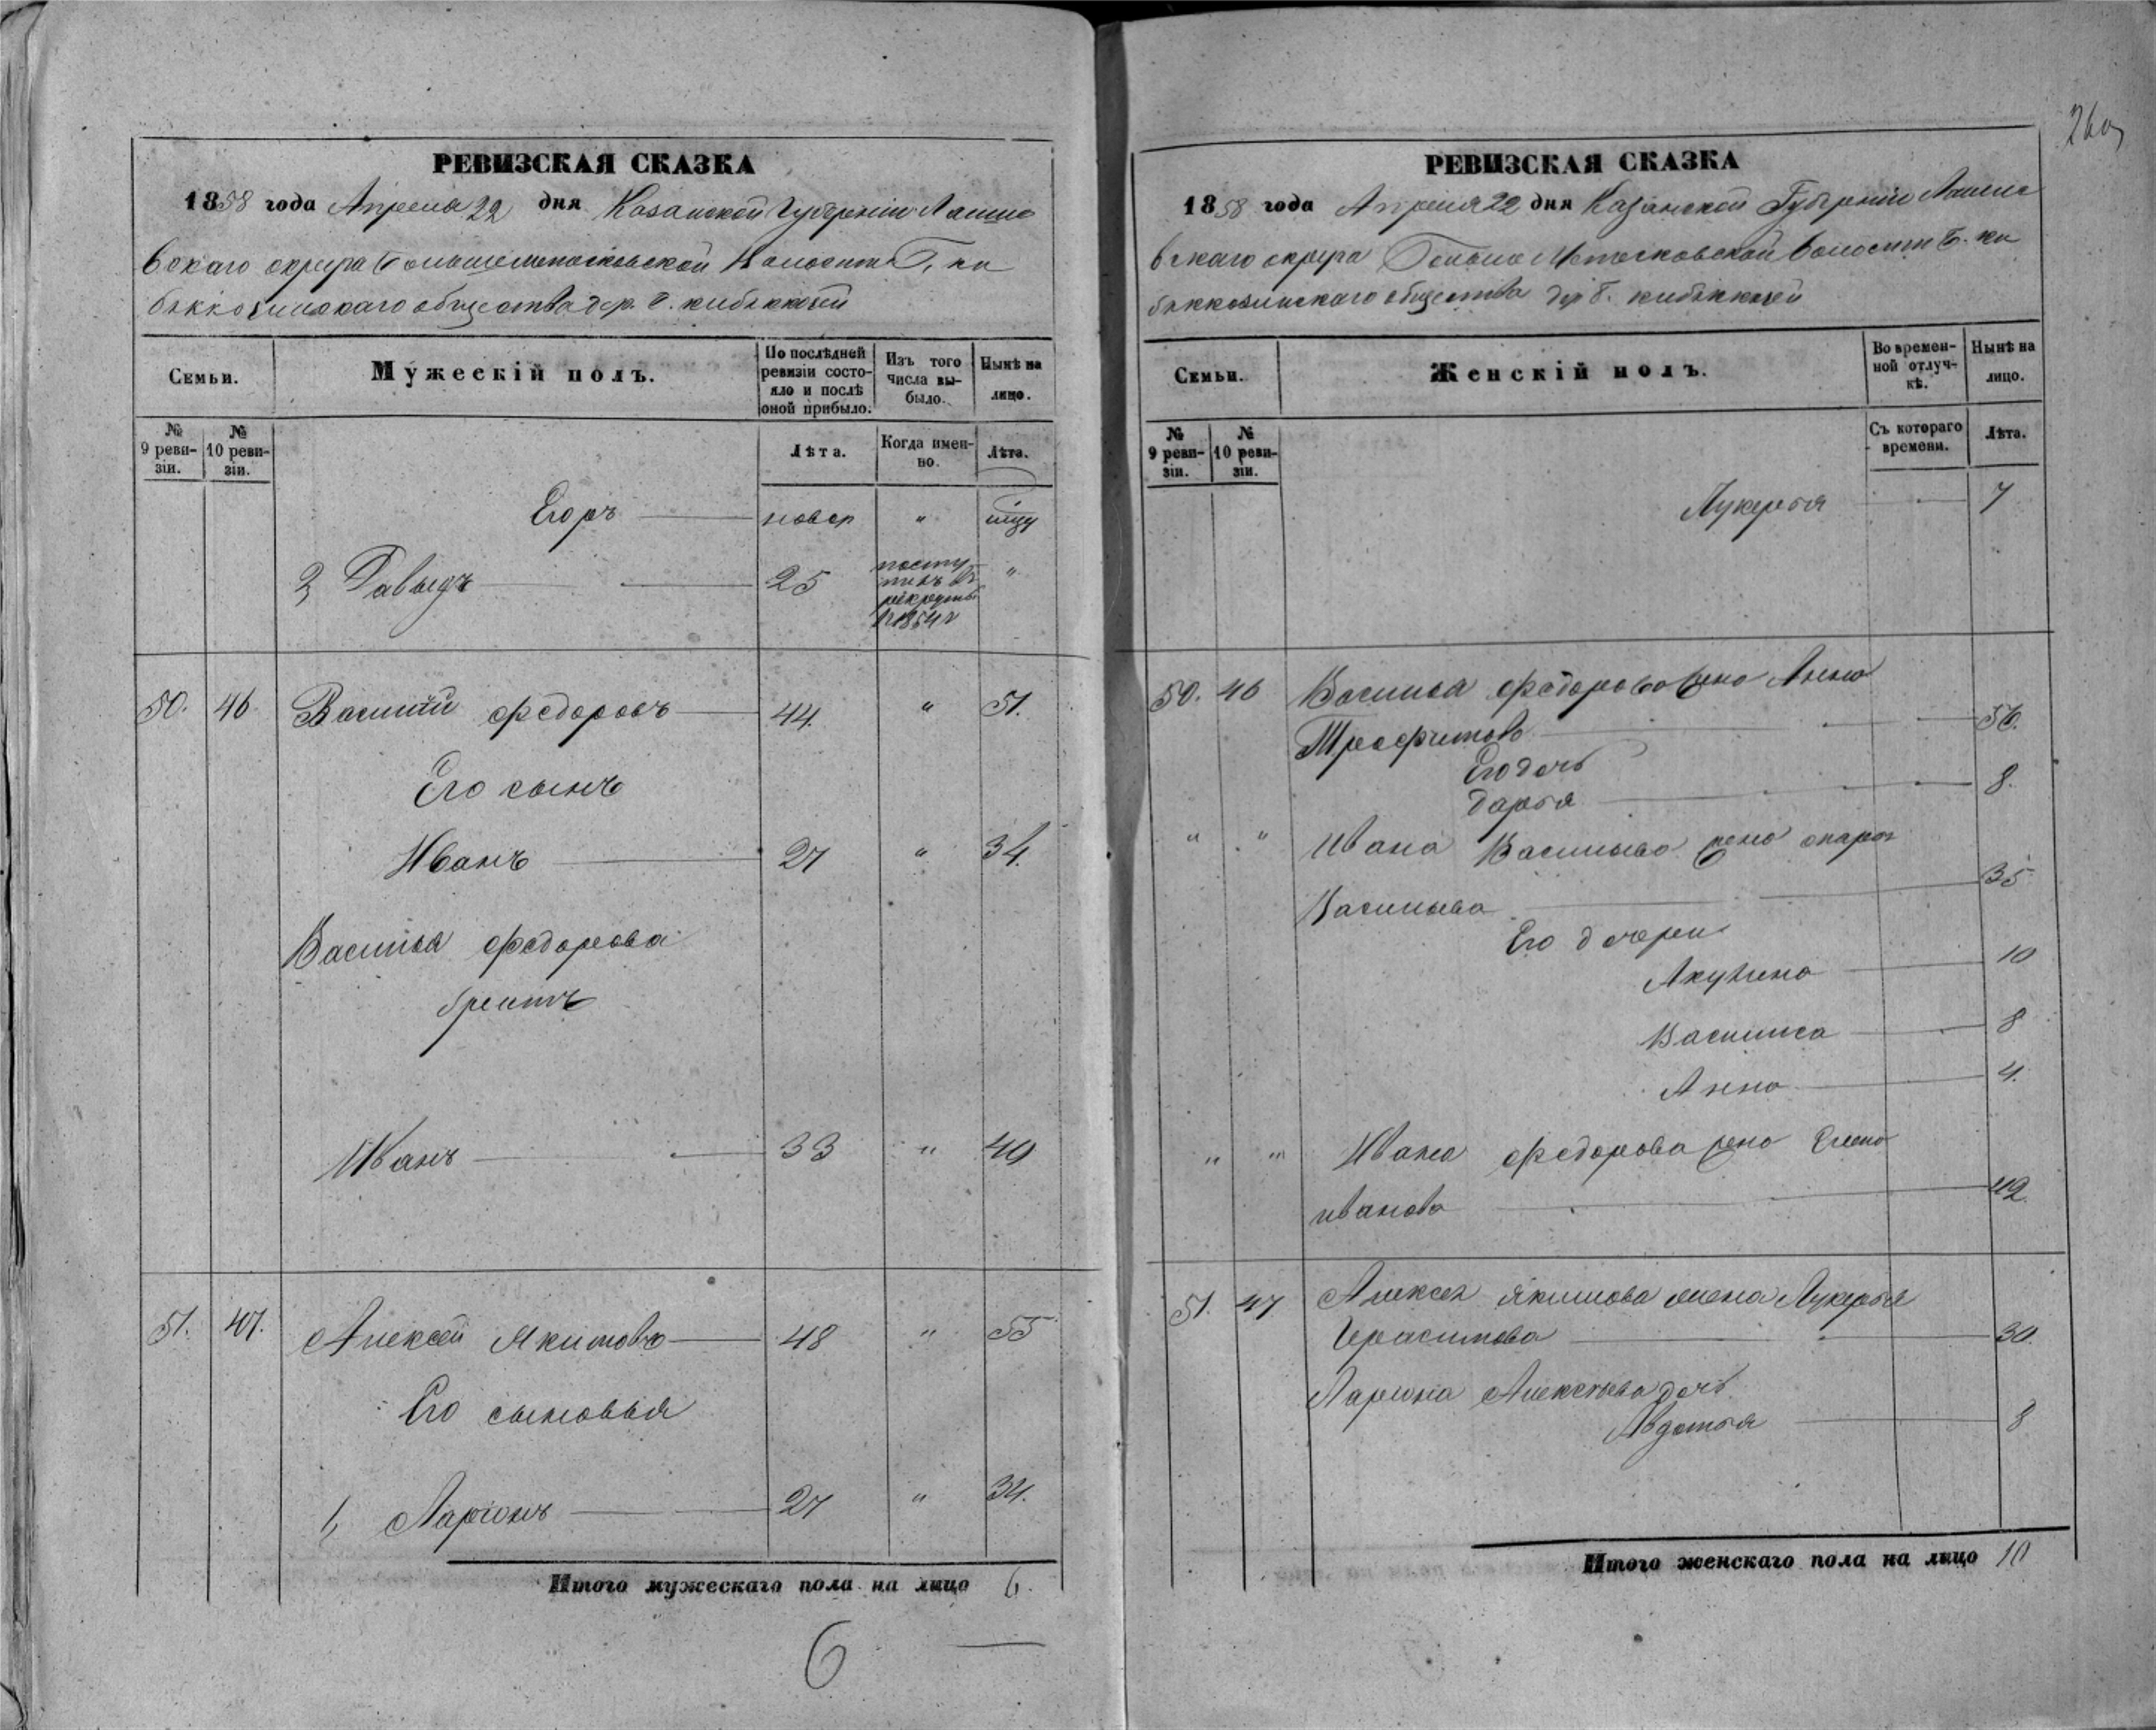 РЕВИЗСКАЯ СКАЗКА
1858 года Апреля 22 дня Казанской Губернiи Лаише
вскаго округа Волости Б. ки
бяккозинскаго общества дер. Б. кибяккозей
Семьи.
Мужескiй полъ.
По послѣдней ревизiи состояло и послѣ оной прибыло.
Изъ того числа выбыло.
Нынѣ на лицо.
№ 9 ревизiи.
№ 10 ревизiи.
Лѣта.
Когда именно.
Лѣта.
Егоръ новор "
2, Давыдъ 25 посту
пилъ въ "
рекруты
в 1854 г
50. 46. Василiй Федоровъ 44. " 51.
Его сынъ
Иванъ 27 " 34.
Василья Федорова
братъ
Иванъ 33 " 40
51. 47. Алексей Якимовъ 48 " 55
Его сыновья
1, Ларiонъ 27 " 34.
Итого мужескаго пола на лицо 6.
6
260
РЕВИЗСКАЯ СКАЗКА
1858 года Апреля 22 дня Казанской Губернiи Лаише
вскаго округа Волости Б. ки
бяккозинскаго общества дер Б. кибяккозей
Семьи.
Женскiй полъ.
Во временной отлучкѣ.
Нынѣ на лицо.
№ 9 ревизiи.
№ 10 ревизiи.
Съ котораго времени.
Лѣта.
Лукерья 7
50. 46 Василья Федорова жена Анна
Трофимова 56.
Его дочь
Дарья 8.
" " Ивана Васильева жена
Васильева 35
Его дочери
Акулина 10
Василиса 8
Анна 4.
" " Ивана Федорова жена Елена
иванова 42.
51. 47 Алексея Якимова жена Лукерья
Герасимова 30.
Ларiона Алексеева дочь
Авдотья 8
Итого женскаго пола на лицо 10